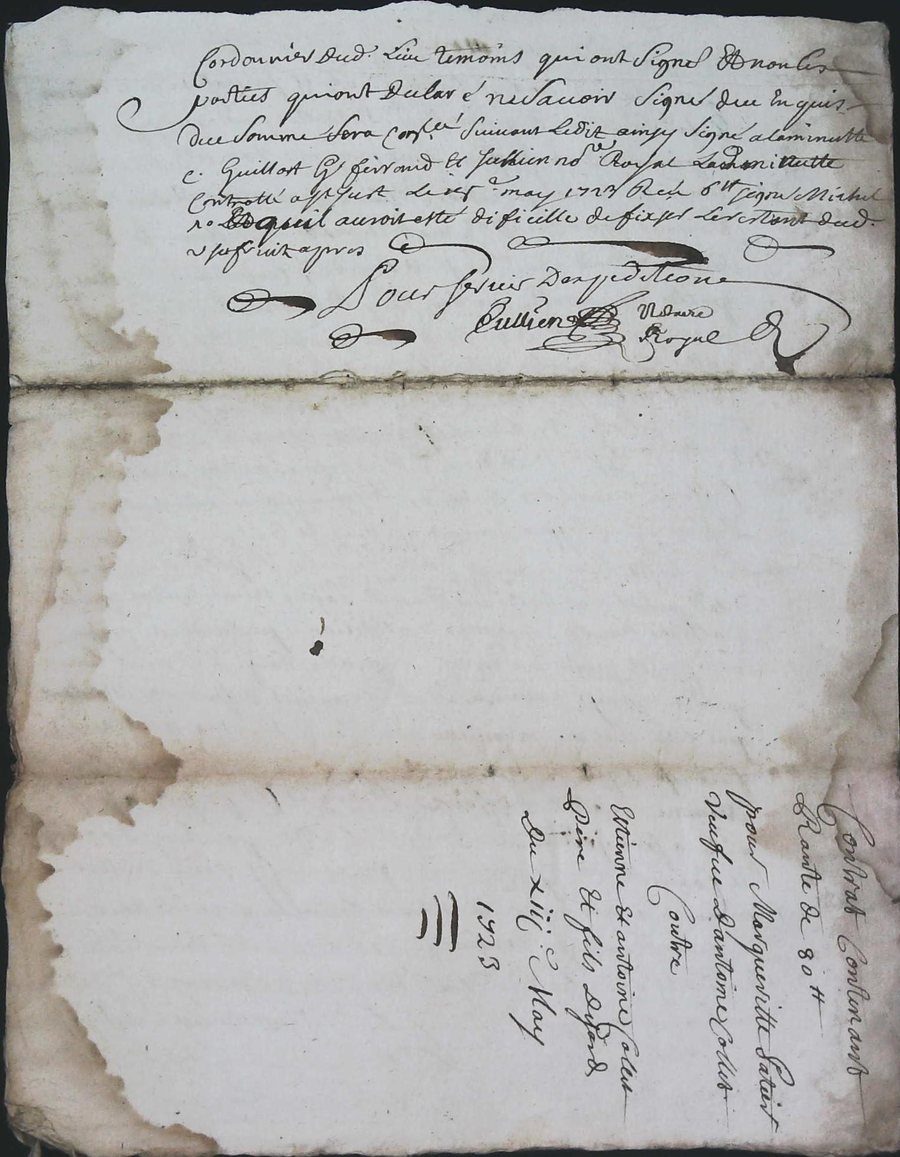 Cordonnier dud. Lieu temoins qui ont Signé Et non les
parties qui ont declaré ne Scavoir Signer de ce Enquis
de ce Somme Sera Suivant Ledit ainsy Signé a la minutte
Guillot Ferrand Et Jullien no.re Royal La minutte
Controllé a St Just Le may 1723 Reçu Signé Michel
Et quil auroit esté dificille de fixer le restant dud.
usufruit apres
Pour Servir Dexpeditione
Jullien Notaire
Royal
Contrat Contenant
Rante de 80 tt
pour Margueritte
Veufue Dantoine Collet
Contre
Etienne Et antoine Collet
Pere Et fils
Du xiije May
1723